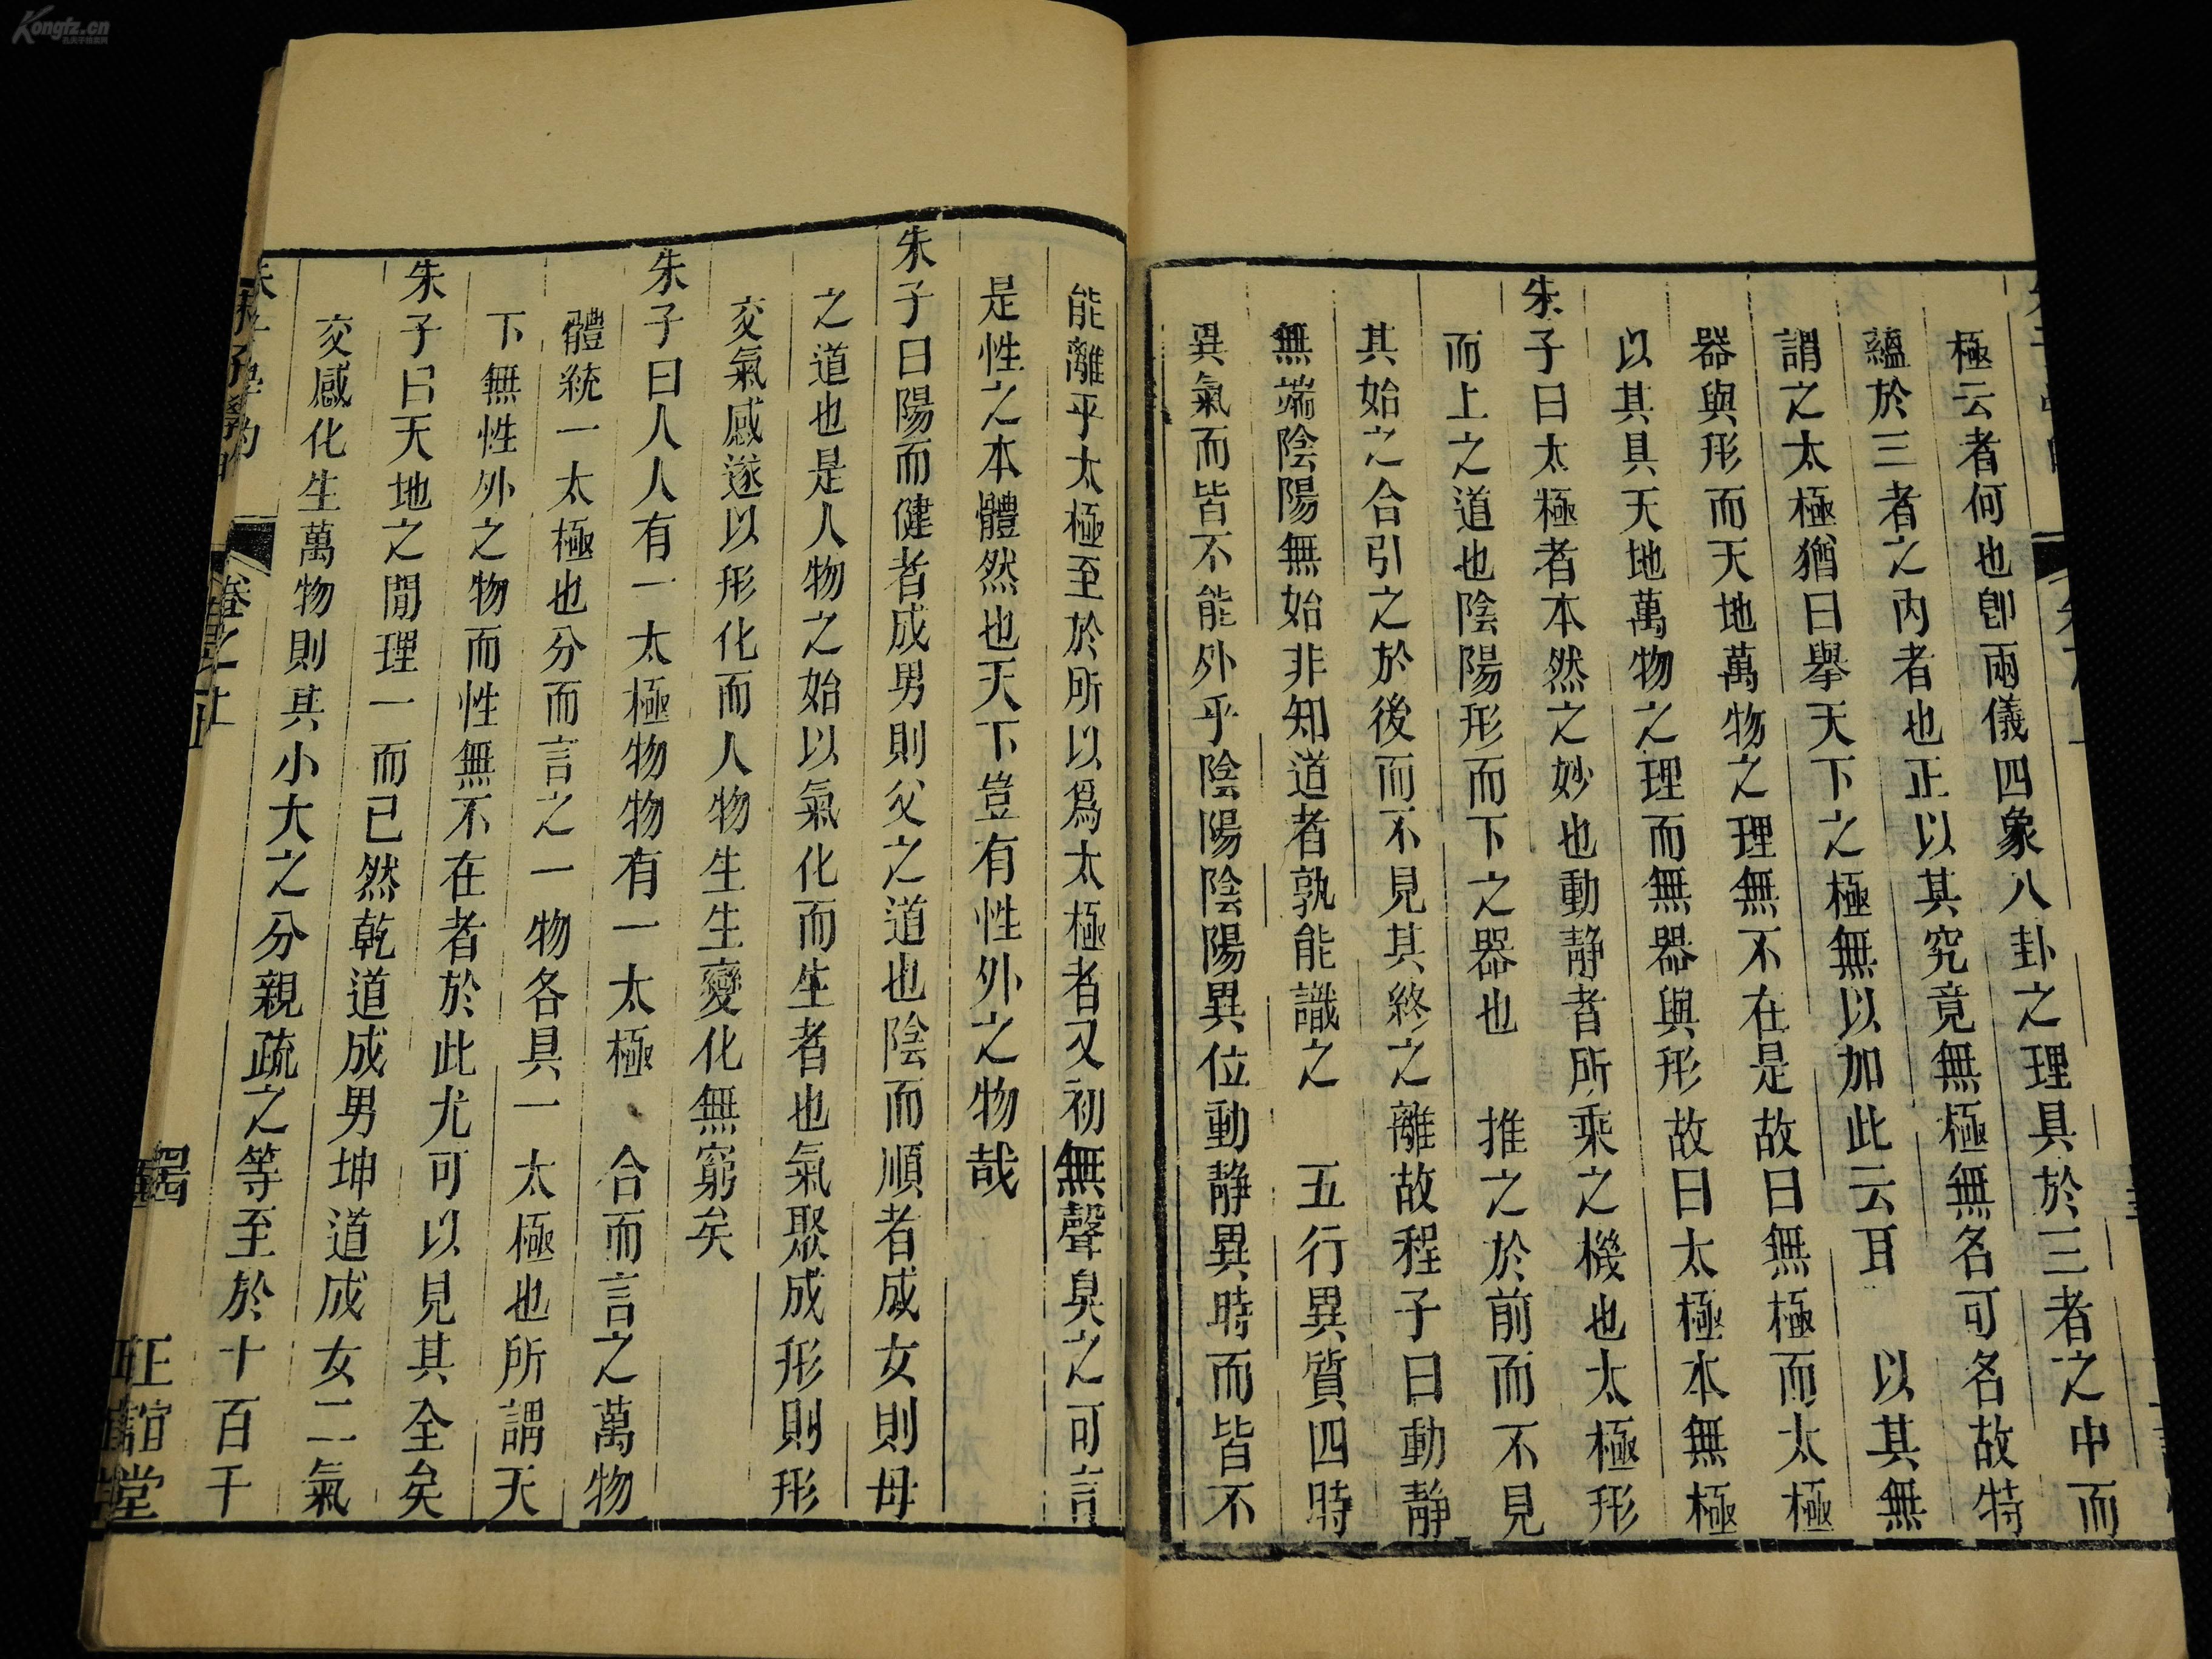 極云者何也卽兩儀四象八卦之理具於三者之中而
蘊於三者之內者也正以其究竟無極無名可名故特
謂之太極猶曰舉天下之極無以加此云耳　以其無
器與形而天地萬物之理無不在是故曰無極而太極
以其具天地萬物之理而無器與形故曰太極本無極
朱子曰太極者本然之妙也動靜者所乘之機也太極形
而上之道也陰陽形而下之器也　推之於前而不見
其始之合引之於後而不見其終之離故程子曰動靜
無端陰陽無始非知道者孰能識之　五行異質四時
異氣而皆不能外乎陰陽陰陽異位動靜異時而皆不
能離乎太極至於所以爲太極者又初無聲臭之可言
是性之本體然也天下豈有性外之物哉
朱子曰陽而健者成男則父之道也陰而順者成女則母
之道也是人物之始以氣化而生者也氣聚成形則形
交氣感遂以形化而人物生生變化無窮矣
朱子曰人人有一太極物物有一太極　合而言之萬物
體統一太極也分而言之一物各具一太極也所謂天
下無性外之物而性無不在者於此尤可以見其全矣
朱子曰天地之閒理一而已然乾道成男坤道成女二氣
交感化生萬物則其小大之分親疏之等至於十百千
卷之上
堂
Kongfz.cn